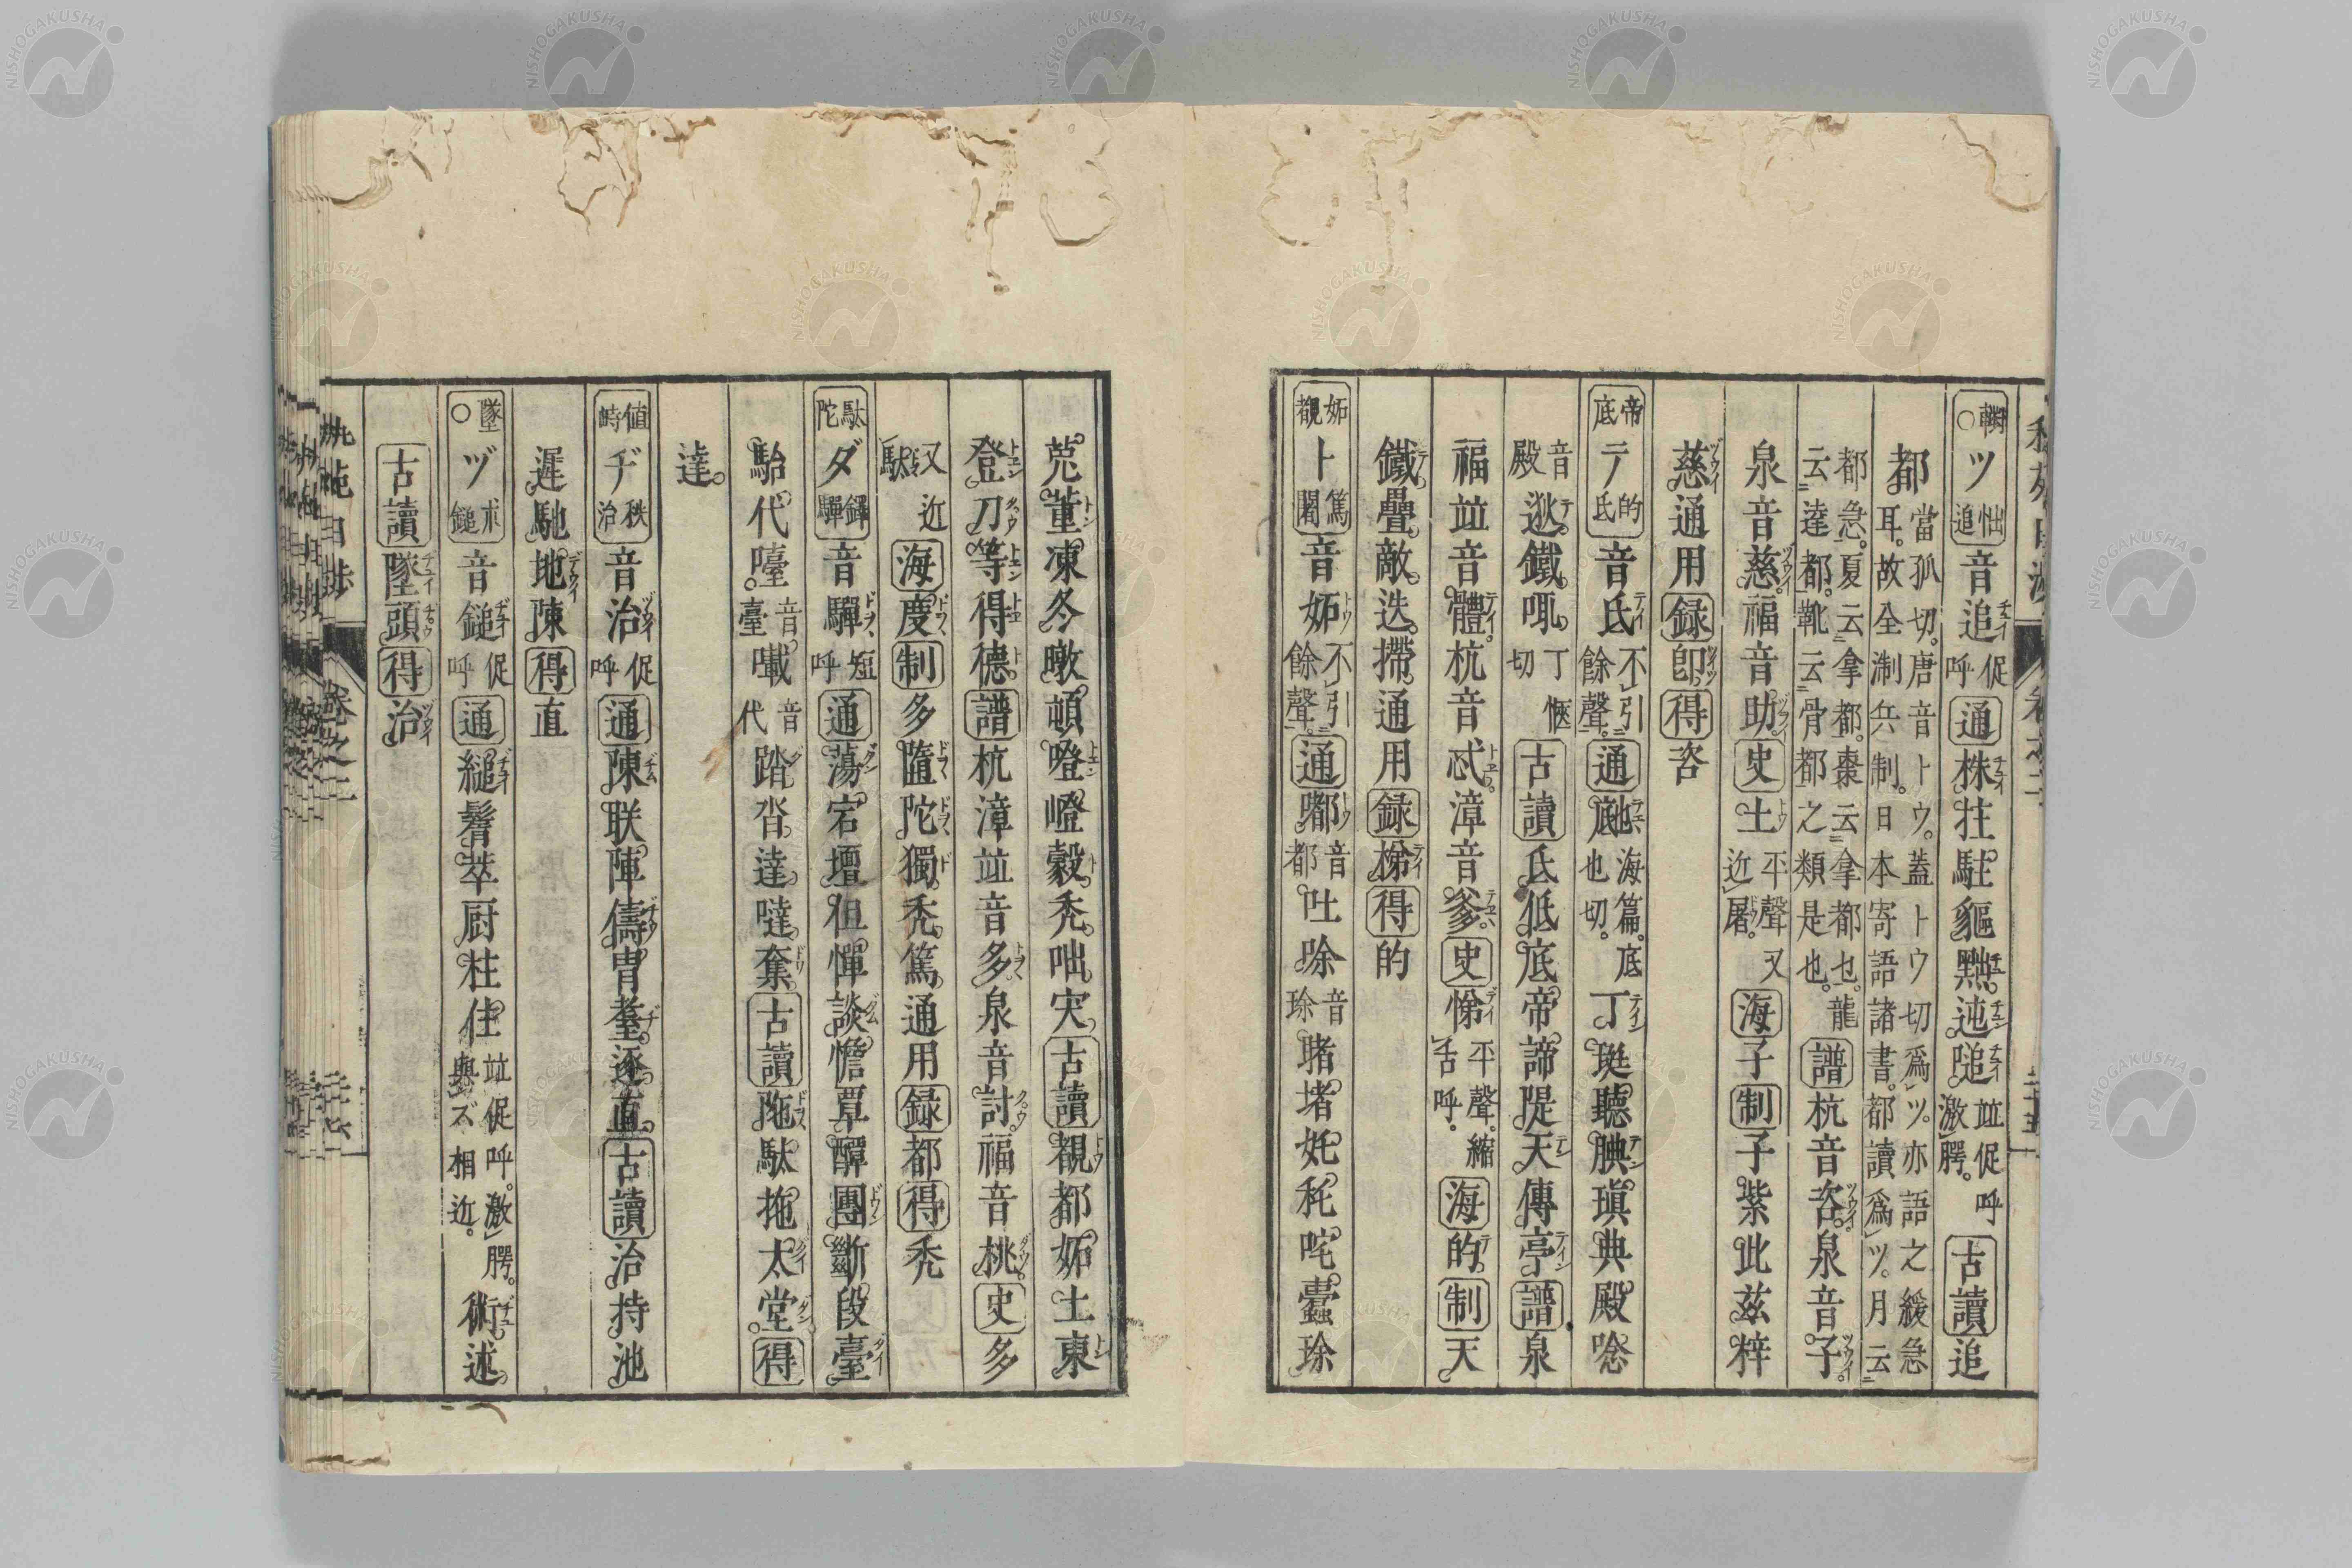 ツ 怞追 音追 促呼 通 株拄駐貙黜迍𨹃 竝促呼激腭。 古讀 追
都 當孤切。唐音トウ。蓋トウ切爲ツ。亦語之緩急耳。故全淛兵制。日本寄語諸書。都讀爲ツ。月云
都急。夏云拿都。棗云拿都也。龍云達都。靴云骨都之類是也。 譜 杭音咨。泉音子。
泉音慈。福音助。 史 土 平聲又近屠。 海 子 制 子紫此茲梓
慈通用 録 卽 得 咨
帝底 テ 的氐 音氐 不引餘聲。 通 海篇。底也切。 丁珽聽腆瑱典殿唸
殿 音 逖。鐵。𠯋 丁愜切 古讀 氐低底帝諦隄天傳亭 譜 泉
福竝音體。杭音忒。漳音爹。 史 悌 平聲。縮舌呼。 海 的。 制 天
鐵疊。敵。迭。㩹通用 録 梯 得 的
妬覩 ト 篤闍 音妬 不引餘聲。 通 嘟 音都 吐唋 音珎 賭堵妊秅咤蠹
莵董凍冬暾頓噔嶝縠禿。咄。宊。 古讀 覩都妬土東
登刀等得德 譜 杭漳竝音多。泉音討。福音桃。 史 多
又近馱 海 度 制 多隨陀獨。禿。篤。通用 録 都 得 禿
馱陀 ダ 鐸驒 音驒 短呼 通 蕩宕壇袒憚談憺覃醰團斷段臺
駘代嚔 音臺 㘋 音代 踏沓達。噠。奪 古讀 陁馱拖太堂 得
達。
値峙 ヂ 秩治 音治 促呼 通 陳朕陣儔冑耋。逐。直。 古讀 治持池
遲馳地陳 得 直
墜○ ヅ 朮鎚 音鎚 促呼 通 縋鬌萃厨柱住 竝促呼。激腭。與ズ相近。 術。述。
古讀 墜頭 得 治
卷之二